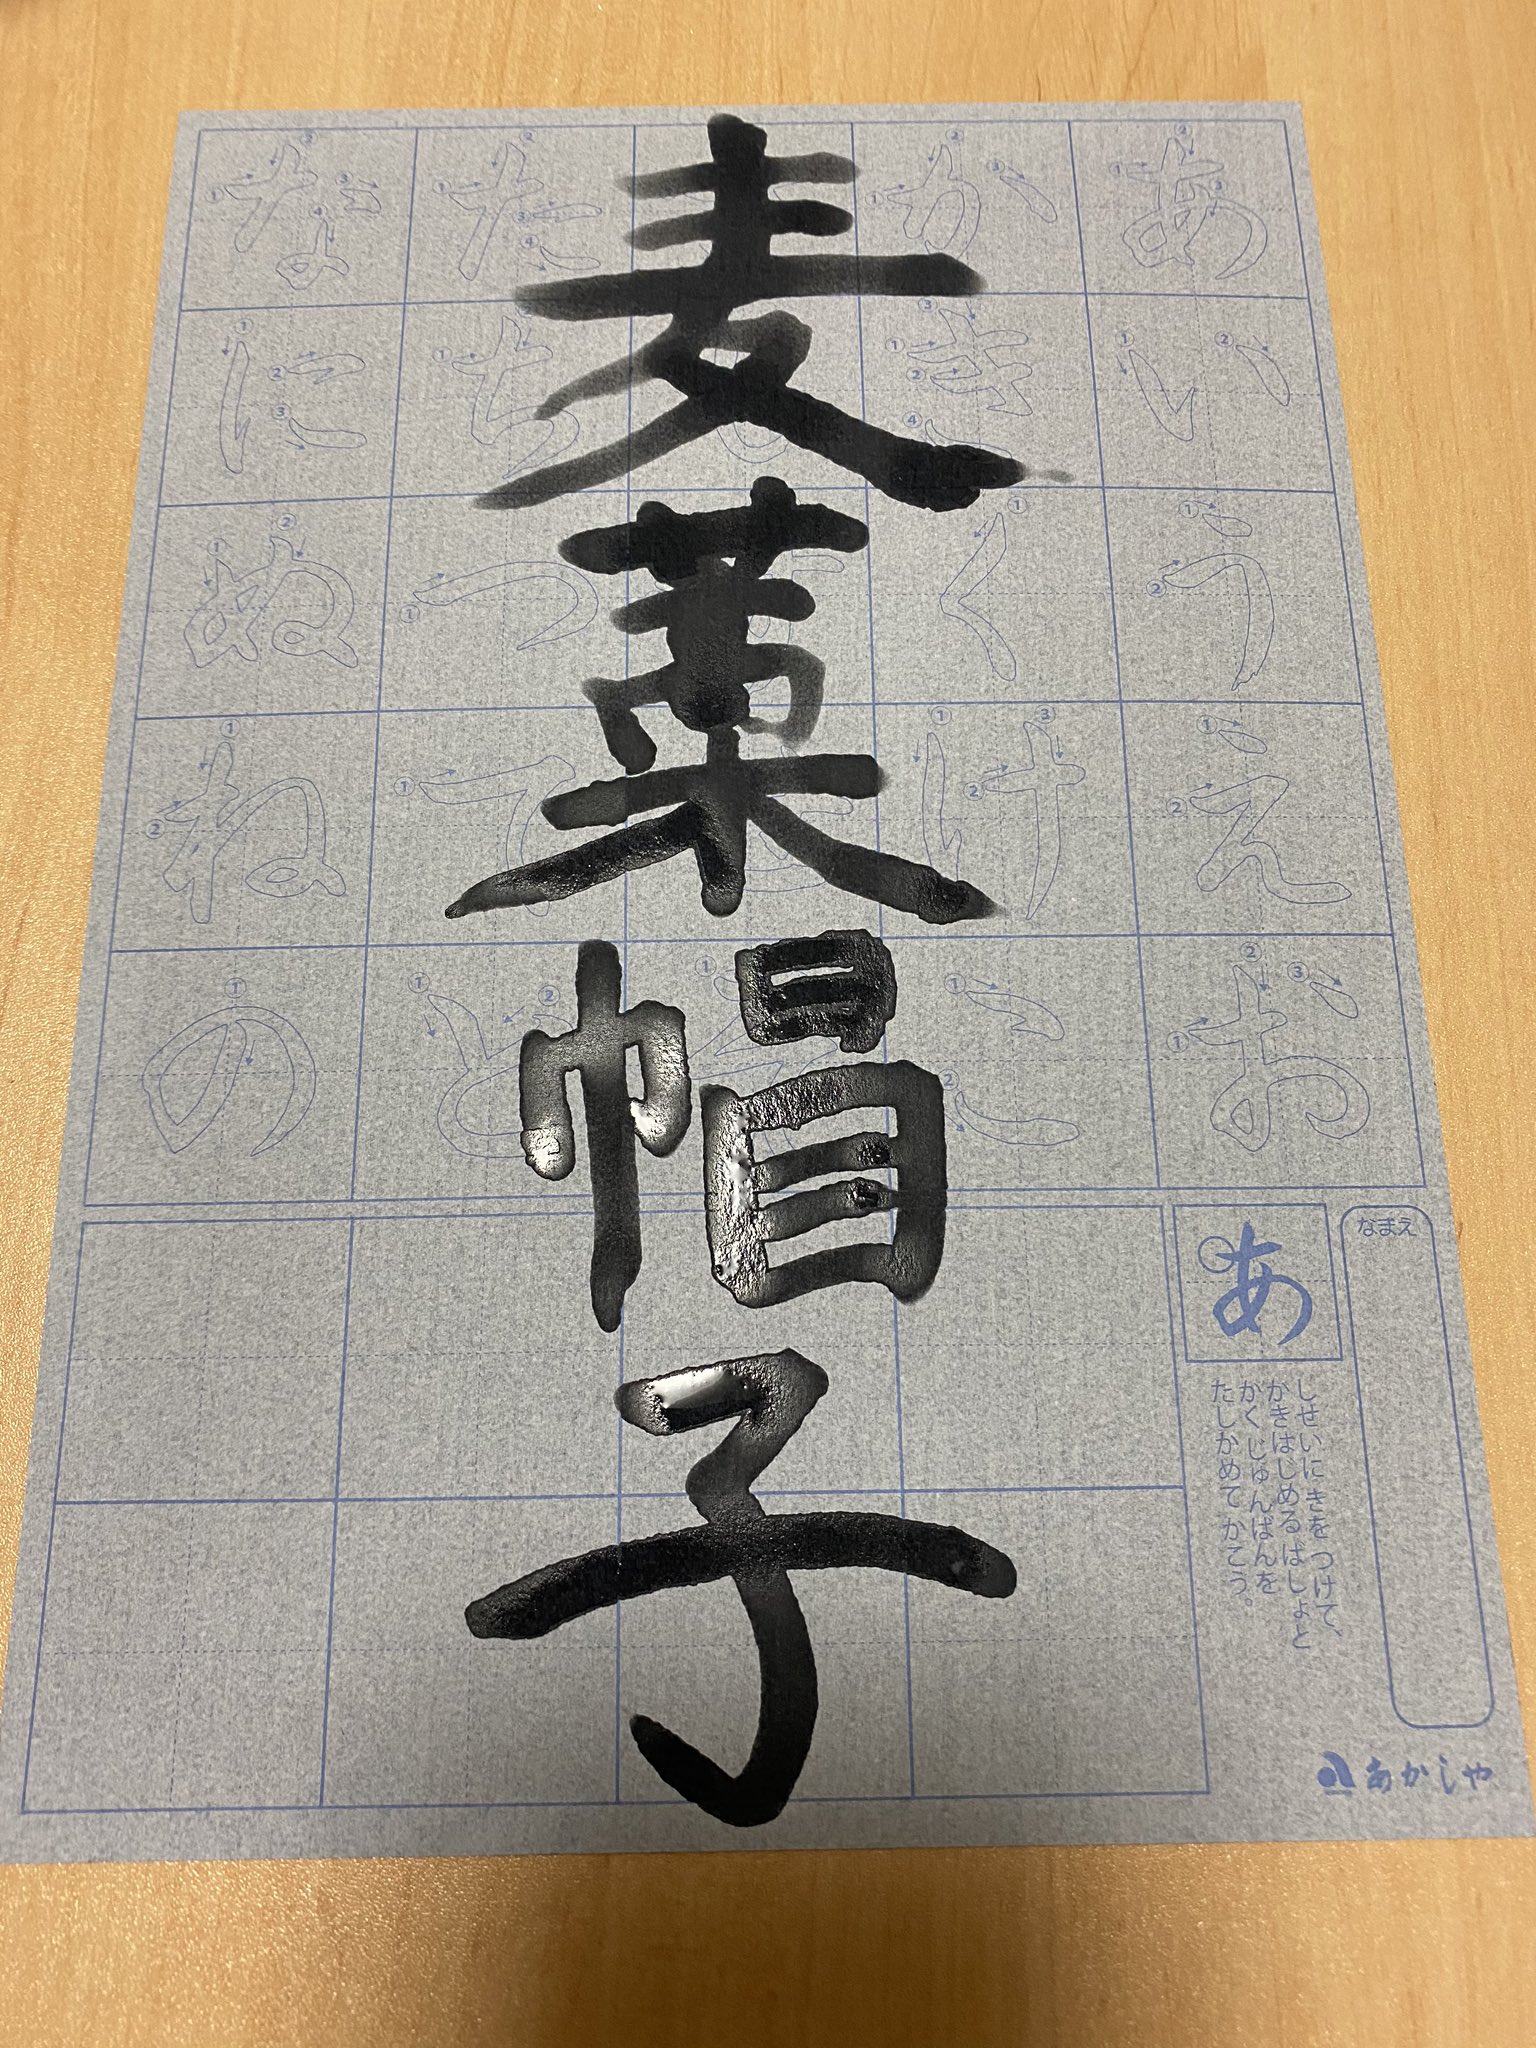 麦藁帽子
あいうえお
かきくけこ
たちつてと
なにぬねの
なまえ
あ
しせいにきをつけて、
かきはじめるばしょと
かくじゅんばんを
たしかめてかこう。
あかしや